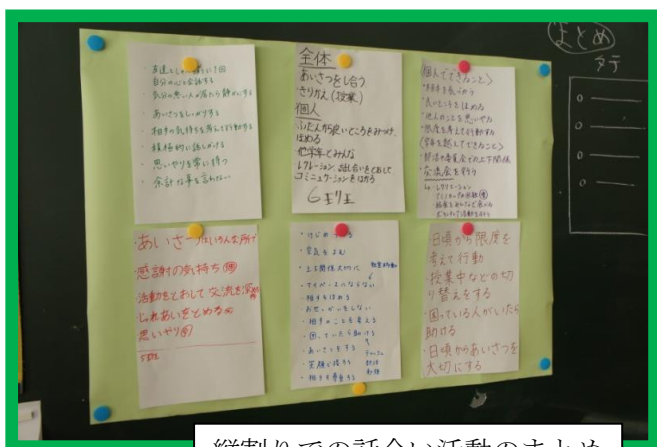 まとめ
タテ
自分の心と会話する
気分の悪い人が居たら静かにする
あいさつをしっかりする
相手の気持ちを考えて行動する
積極的に話しかける
思いやりを常に持つ
余計な事を言わない
全体
あいさつをし合う
きりかえ(授業)
個人
ふだんから良いところをみつけ、
ほめる
他学年とみんな
レクレーション 話し合いをとおして
コミュニケーションをはかる
6王7王
個人でできること>
良いところをほめる
他人のことを思いやる
限度を考えて行動する
(学年を越えてできること)
部活や委員会での上下関係
交流会を行う
・あいさつはいろんな所で
・感謝の気持ち
・活動をとおして交流を深める
・じゃれあいをとめる
・思いやり
5王
・けじめ
・空気をよむ
・上下関係大切に
・サイバーにならない
・相手をほめる
おせっかいをしない
・相手のことを考える
・困っていたら助ける
・あいさつをする
・笑顔で接する
・相手を尊重する
・日頃から限度を
考えて行動
・授業中などの切
り替えをする
・困っている人がいたら
助ける
・日頃からあいさつを
大切にする
縦割りでの話合い活動のまとめ